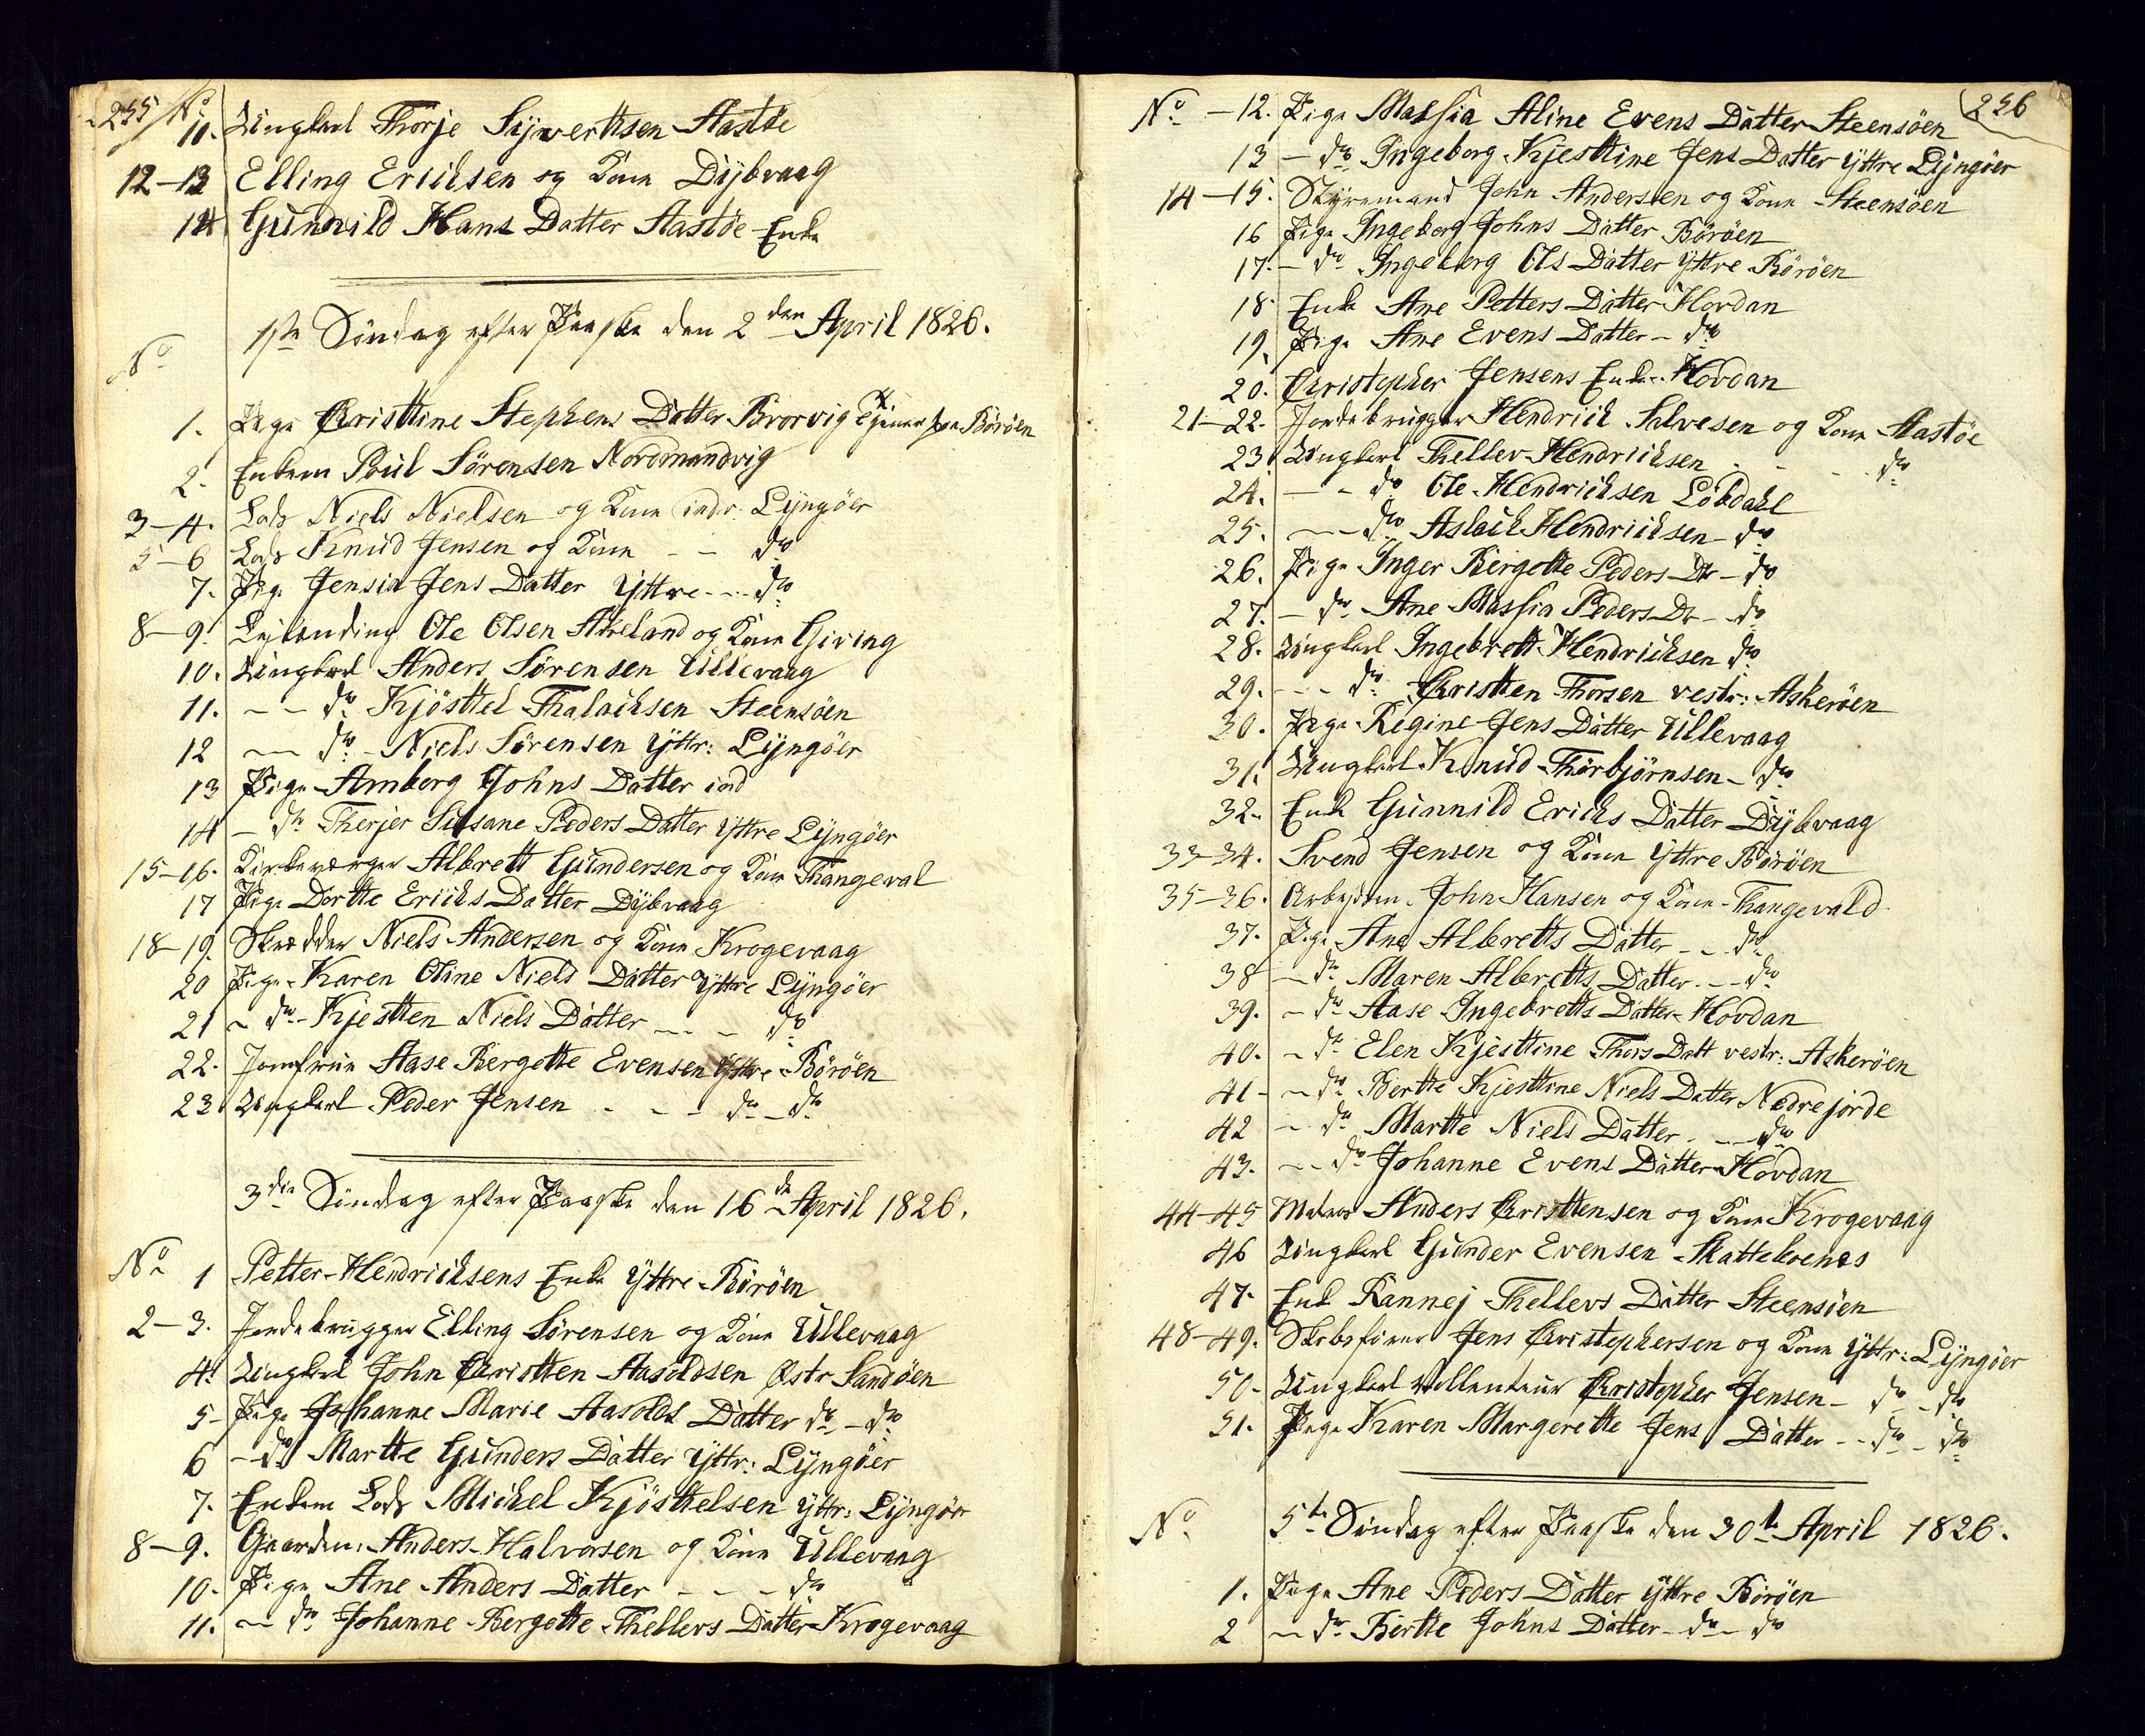 255 No
11. Ungkarl Thorje Sijvertksen Aastöe
12-13 Elling Ericksen og Kone Dijbvaag
14 Gunnild Hans Datter Aastöe Enke
1ste Söndag efter Paaske den 2den April 1826.
No
1. Pige Christtine Stephens Datter Brorvig tjener paa Böröen
2. Enkem Poul Sörensen Nordmandvig
3-4. Lods Niels Nielsen og Kone indr. Lijngöer
5-6 Lods Knud Jensen og Kone - - do
7. Pige Jensia Jens Datter Yttre - - do
8-9. Lejlænding Ole Olsen Akeland og Kone Giving
10. Ungkarl Anders Sörensen Ullevaag
11. - - do Kjösttel Thalacksen Steensöen
12 - do - Niels Sörensen Yttr: Lijngöer
13 Pige Amborg Johns Datter ind
14 - do Therjer Susane Peders Datter Yttre Lijngöer
15-16. Kirkeværger Albrett Gundersen og Kone Thangeval
17 Pige Dortte Ericks Datter Dijbvaag
18-19. Skrædder Niels Andersen og Kone Krogevaag
20 Pige Karen Oline Niels Datter Yttre Lijngöer
21 - do - Kjestten Niels Datter - - - do
22. Jomfrue Aase Bergette Evensen Yttre Böröen
23 Ungkarl Peder Jensen - - - do - do
3die Söndag efter Paaske den 16de April 1826.
No 1 Petter Hendricksens Enke Yttre Böröen
2-3. Jordebrugger Elling Sörensen og Kone Ullevaag
4. Ungkarl John Christten Aasoldsen Östr Sandöen
5- Pige Johanne Marie Aasolds Datter do - do
6 - do Martte Gunders Datter Yttr: Lijngöer
7. Enkem Lods Mickel Kjösttelsen Yttr: Lijngöer
8-9. Gaardm: Anders Halvorsen og Kone Ullevaag
10. Pige Ane Anders Datter - - - do
11. - do Johanne Bergette Thellevs Datter Krogevaag
256
No - 12. Pige Massia Aline Evens Datter Steensöen
13 - do Ingeborg Kjesttine Jens Datter Yttre Lijngöer
14-15. Styremand John Andersen og Kone Steensöen
16 Pige Ingeborg Johns Datter Böröen
17. - do Ingeborg Ols Datter Yttre Böröen
18. Enke Ane Petters Datter Hovdan
19. Pige Ane Evens Datter - do
20. Christopher Jensens Enke Hovdan
21-22. Jordebrugger Hendrick Salvesen og Kone Aastöe
23 Ungkarl Thellev Hendricksen - - - do
24. - - do Ole Hendricksen Löbdahl
25. - - do Aslack Hendricksen - do
26. Pige Inger Bergette Peders Dr - do
27. - do Ane Massia Peders Dr - do
28. Ungkarl Ingebrett Hendricksen do
29. - - do Christten Thorsen vestr: Askeröen
30. Pige Regine Jens Datter Ullevaag
31. Ungkarl Knud Thorbjörnsen - do
32. Enke Gunnild Ericks Datter Dijbvaag
33-34. Svend Jensen og Kone Yttre Böröen
35-36. Arbejdsm. John Hansen og Kone Thangevald
37. Pige Ane Albretts Datter - - do
38 - do Maren Albretts Datter - - do
39. - do Aase Ingebretts Datter Hovdan
40. - do Elen Kjesttine Thors Datt vestr: Askeröen
41 - - do Bertte Kjesttine Niels Datter Nedrejorde
42 - do Martte Niels Datter - - do
43. - - do Johanne Evens Datter Hovdan
44-45 Matros Anders Christtensen og Kone Krogevaag
46 Ungkarl Gunder Evensen Skattekoenes
47. Enke Rannej Thellevs Datter Steensöen
48-49. Skibsförer Jens Christophersen og Kone Yttr: Lijngöer
50- Ungkarl Vollenteur Christopher Jensen - do - do
51. Pige Karen Margerette Jens Datter - - do - do
No 5te Söndag efter Paaske den 30te April 1826.
1. Pige Ane Peders Datter Yttre Böröen
2 - do Bertte Johns Datter - do - do